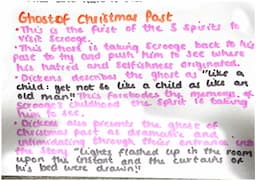 Ghost of Christmas Past
• This is the first of the 3 Spirits to
visit Scrooge.
• This Ghost is taking Scrooge back to his
past to try and push him to see where
his hatred and selfishness originated.
• Dickens describes the ghost as "like a
child: yet not so like a child as like an
old man". This forebodes the memory of
Scrooge's childhood the Spirit is taking
him to see.
• Dickens also presents the ghost of
Christmas past as dramatic and
intimidating through their entrance into
the story "Lights flashed up in the room
upon the instant and the curtains of
his bed were drawn."